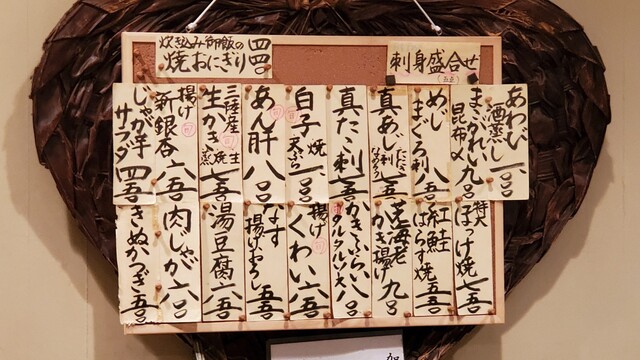 刺身盛合せ
炊き込み御飯の
焼おにぎり 四四〇
あわび
酒蒸し 一、〇〇〇
まこがれい
昆布〆 九〇〇
めじ
まぐろ刺 八五〇
真あじ
たたき
なめろう 七五〇
真たこ刺 七五〇
白子 焼
天ぷら 一、〇〇〇
あん肝 八〇〇
三陸産
生かき 生
焼
蒸 七五〇
揚げ
新銀杏 六五〇
じゃが芋
サラダ 四五〇
特大
ほっけ焼 七五〇
紅鮭
はらす焼 五五〇
芝海老
かき揚げ 九〇〇
かきふらい
タルタル 八〇〇
揚げ
くわい 六五〇
なす
揚げおろし 五五〇
湯豆腐 六五〇
肉じゃが 六五〇
きぬかつぎ 五五〇